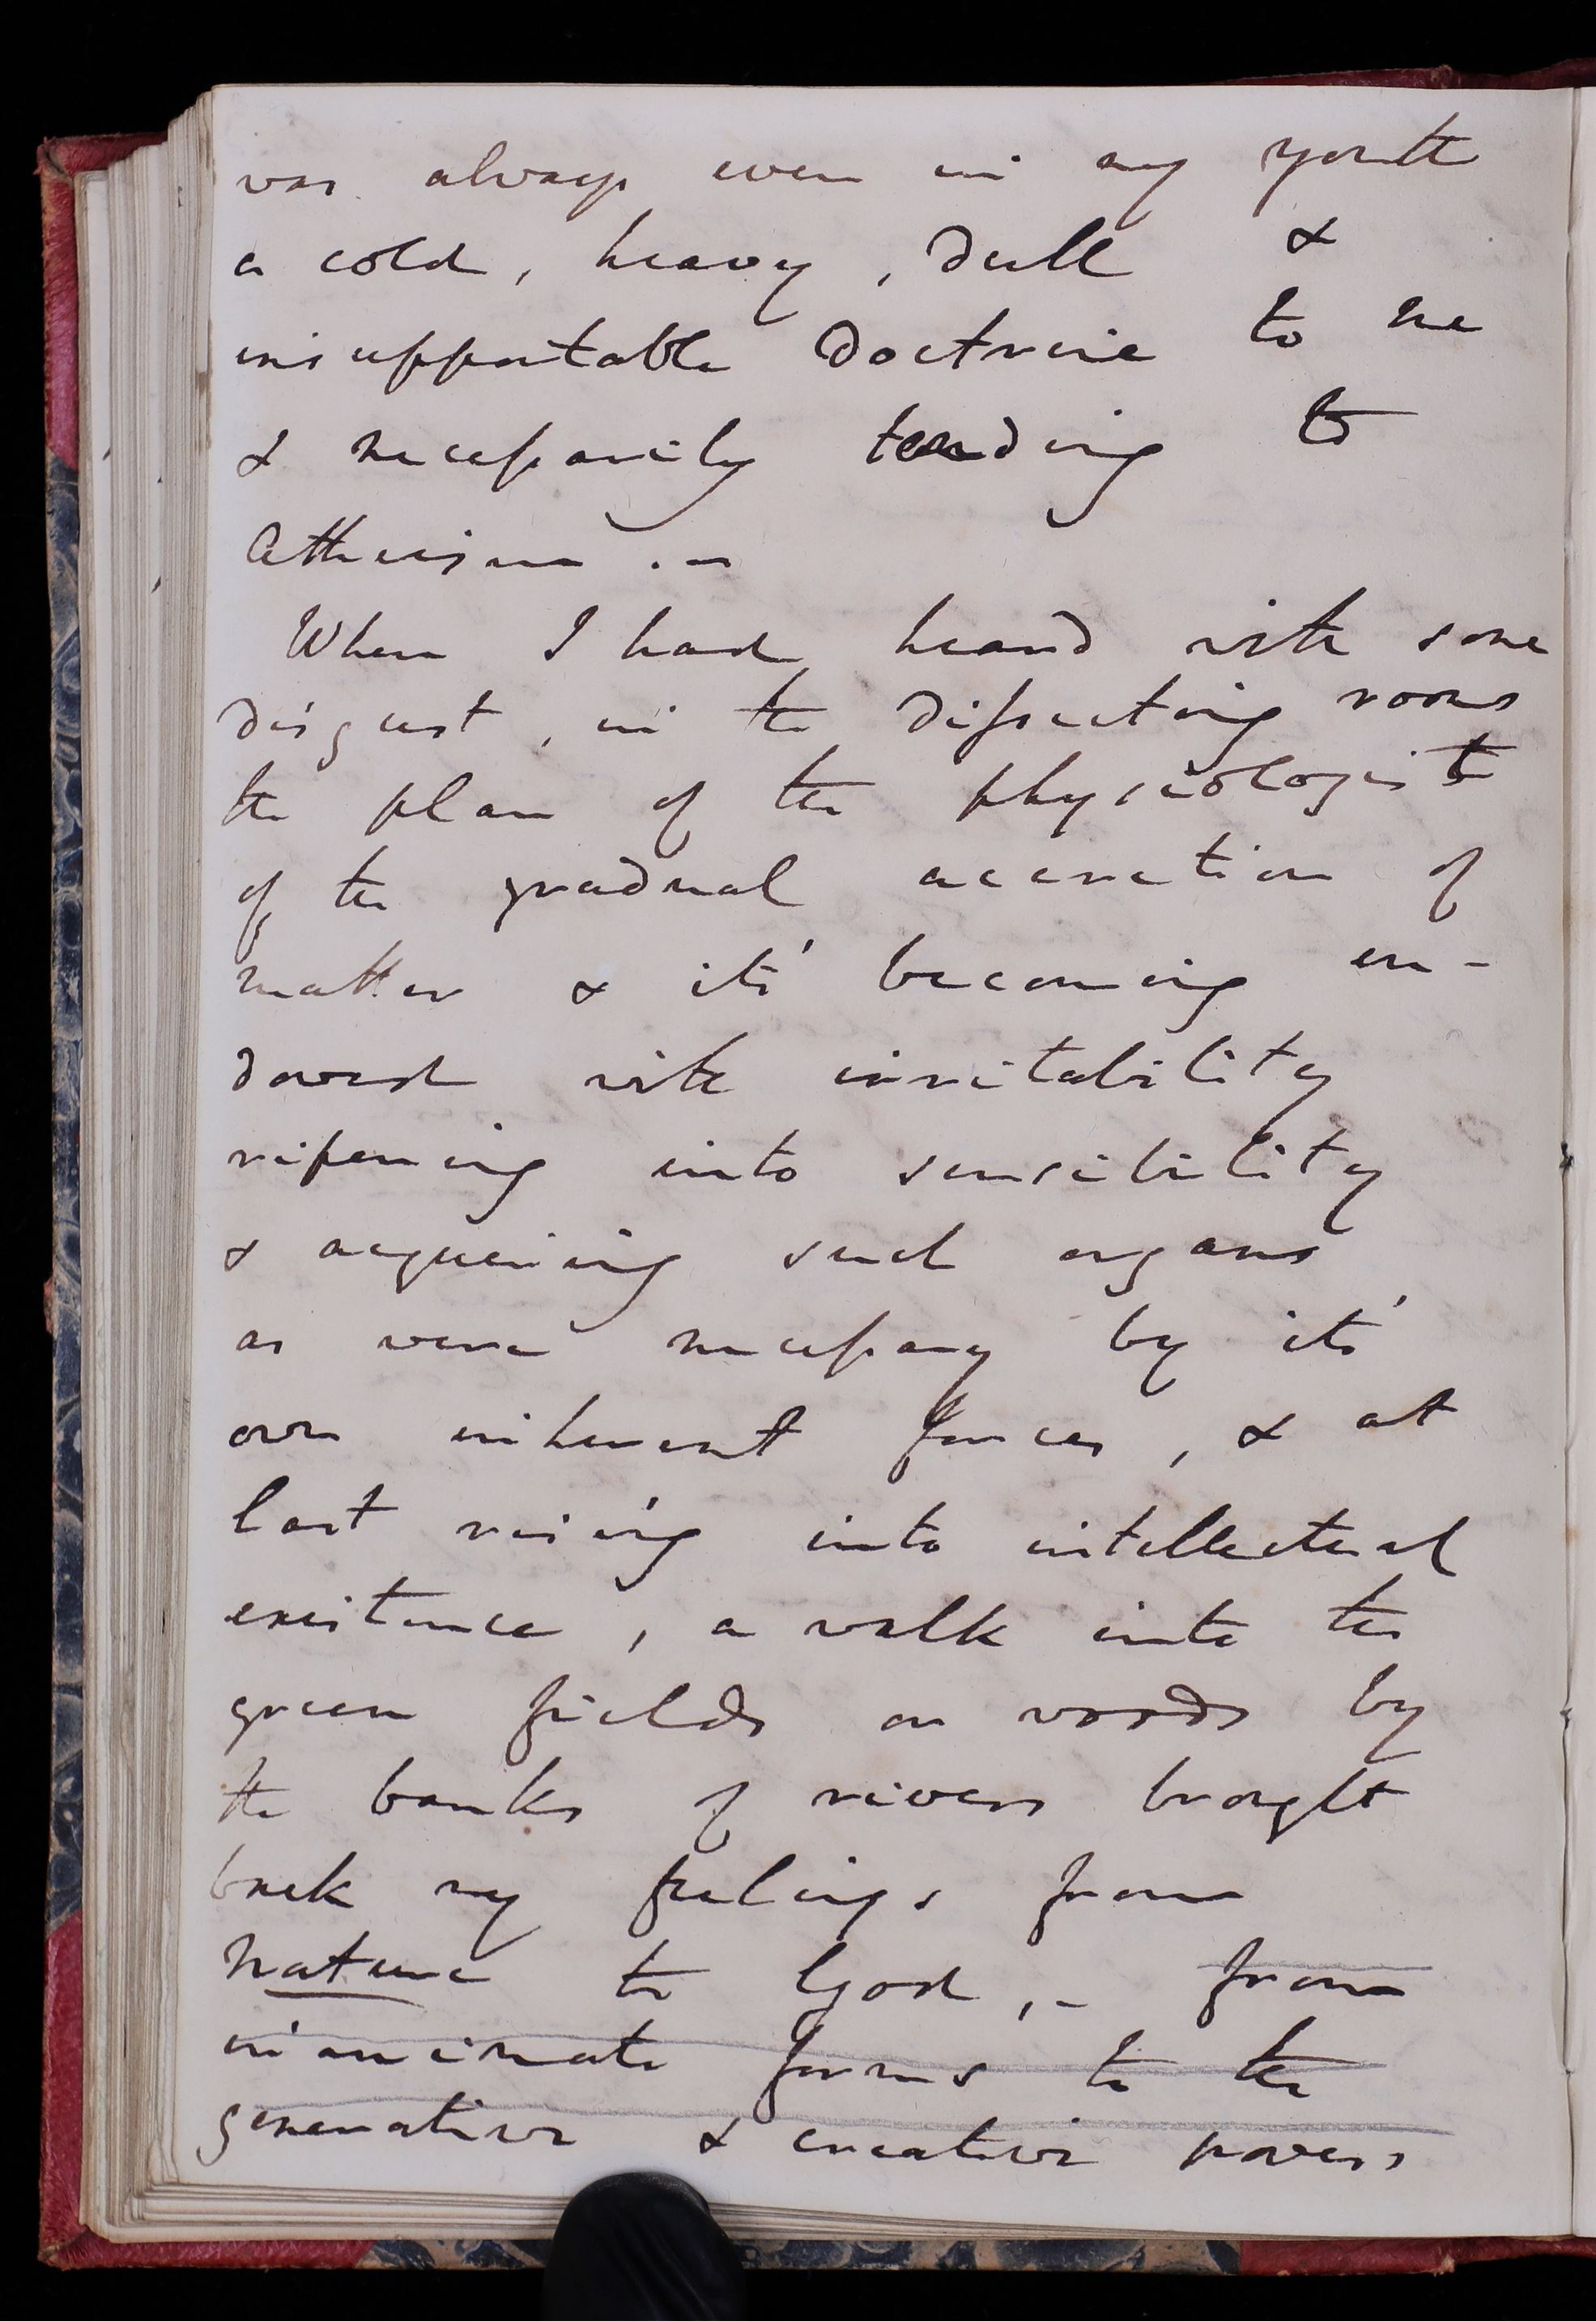 was always even in my youth
a cold, heavy, dull &
insupportable doctrine to me
& necessarily tending to
Atheism. –
When I had heard with some
disgust, in the dissecting rooms
the plan of the physiologist
of the gradual accretion of
matter & its' becoming en-
dowed with irritability
ripening into sensibility
& acquiring such organs
as were necessary by its'
own inherent forces, & at
last rising into intellectual
existence, a walk into the
green fields or woods by
the banks of rivers brought
back my feelings from
Nature to God, – from
inanimate forms to the
generative & creative powers